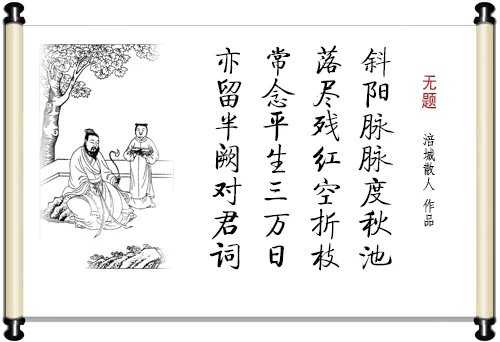 无题
涪城散人 作品
斜阳脉脉度秋池
落尽残红空折枝
常念平生三万日
亦留半阙对君词